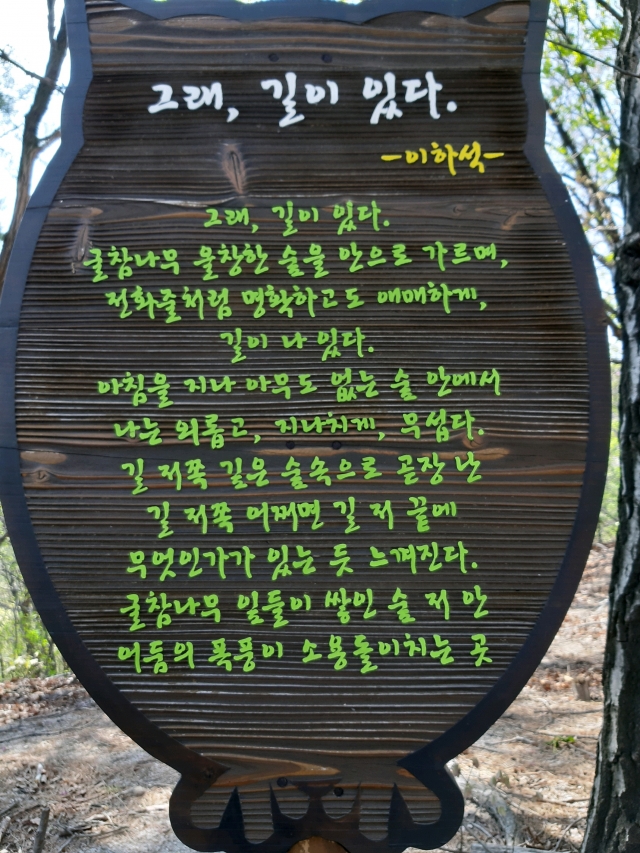 그래, 길이 있다.
-이하석-
그래, 길이 있다.
굴참나무 울창한 숲을 안으로 가르며,
전화줄처럼 명확하고도 애매하게,
길이 나 있다.
아침을 지나 아무도 없는 숲 안에서
나는 외롭고, 지나치게, 무섭다.
길 저쪽 깊은 숲속으로 곧장 난
길 저쪽 어쩌면 길 저 끝에
무엇인가가 있는 듯 느껴진다.
굴참나무 잎들이 쌓인 숲 저 안
어둠의 폭풍이 소용돌이치는 곳